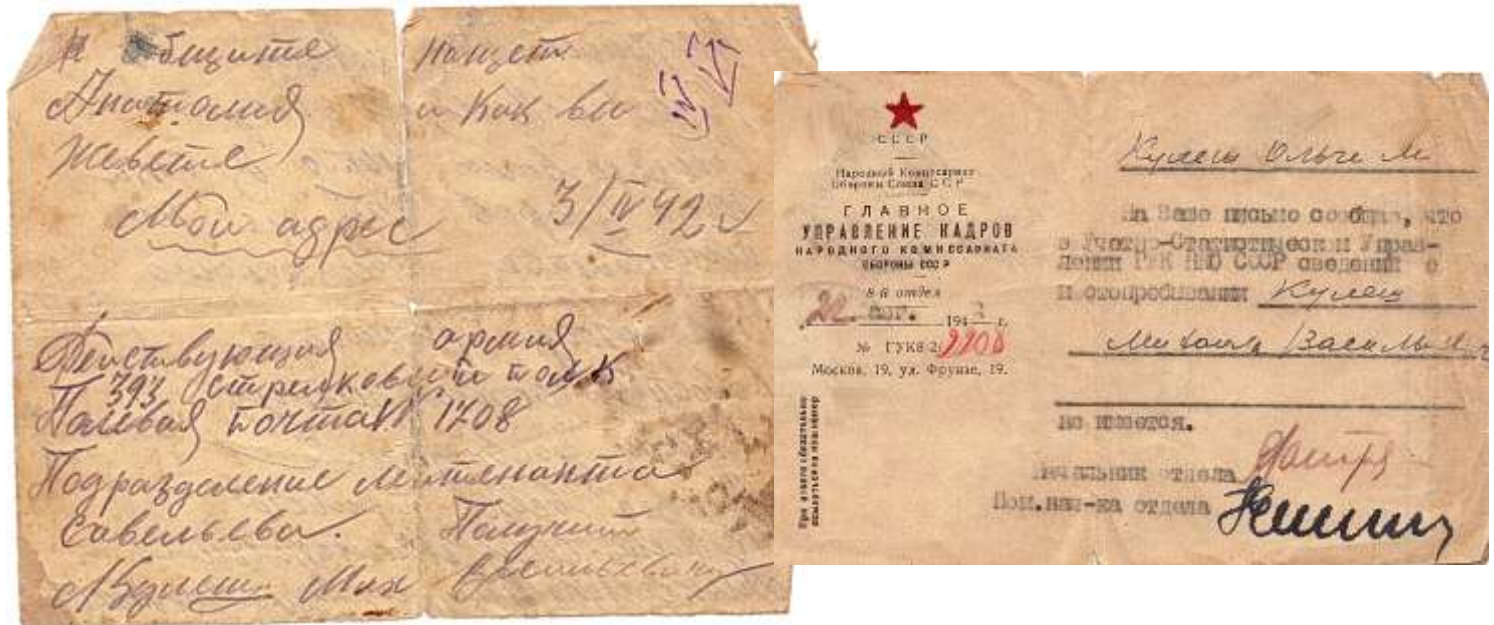 общите насчет
Анатолия и Как вы
Живете
Мой адрес 3/IV 42 г
Действующия армия
393 Стрелковый полк
Полевая почта № 1708
Подразделение лейтенанта
Савельева. Получит
Кулеш Мих Васильевич
СССР
Народный Комиссариат
Обороны Союза ССР
ГЛАВНОЕ
УПРАВЛЕНИЕ КАДРОВ
НАРОДНОГО КОМИССАРИАТА
ОБОРОНЫ СССР
8-й отдел
22. авг. 194 г.
№ ГУК8-2
Москва, 19, ул. Фрунзе, 19.
При ответе обязательно
ссылаться на наш номер
Кулеш Ольге М
На Ваше письмо сообщаю, что
в Учетно-Статистическом Управ-
лении ГУК НКО СССР сведений о
местопребывании Кулеш
Михаил Васильевич
не имеется.
Начальник отдела
Пом. нач-ка отдела